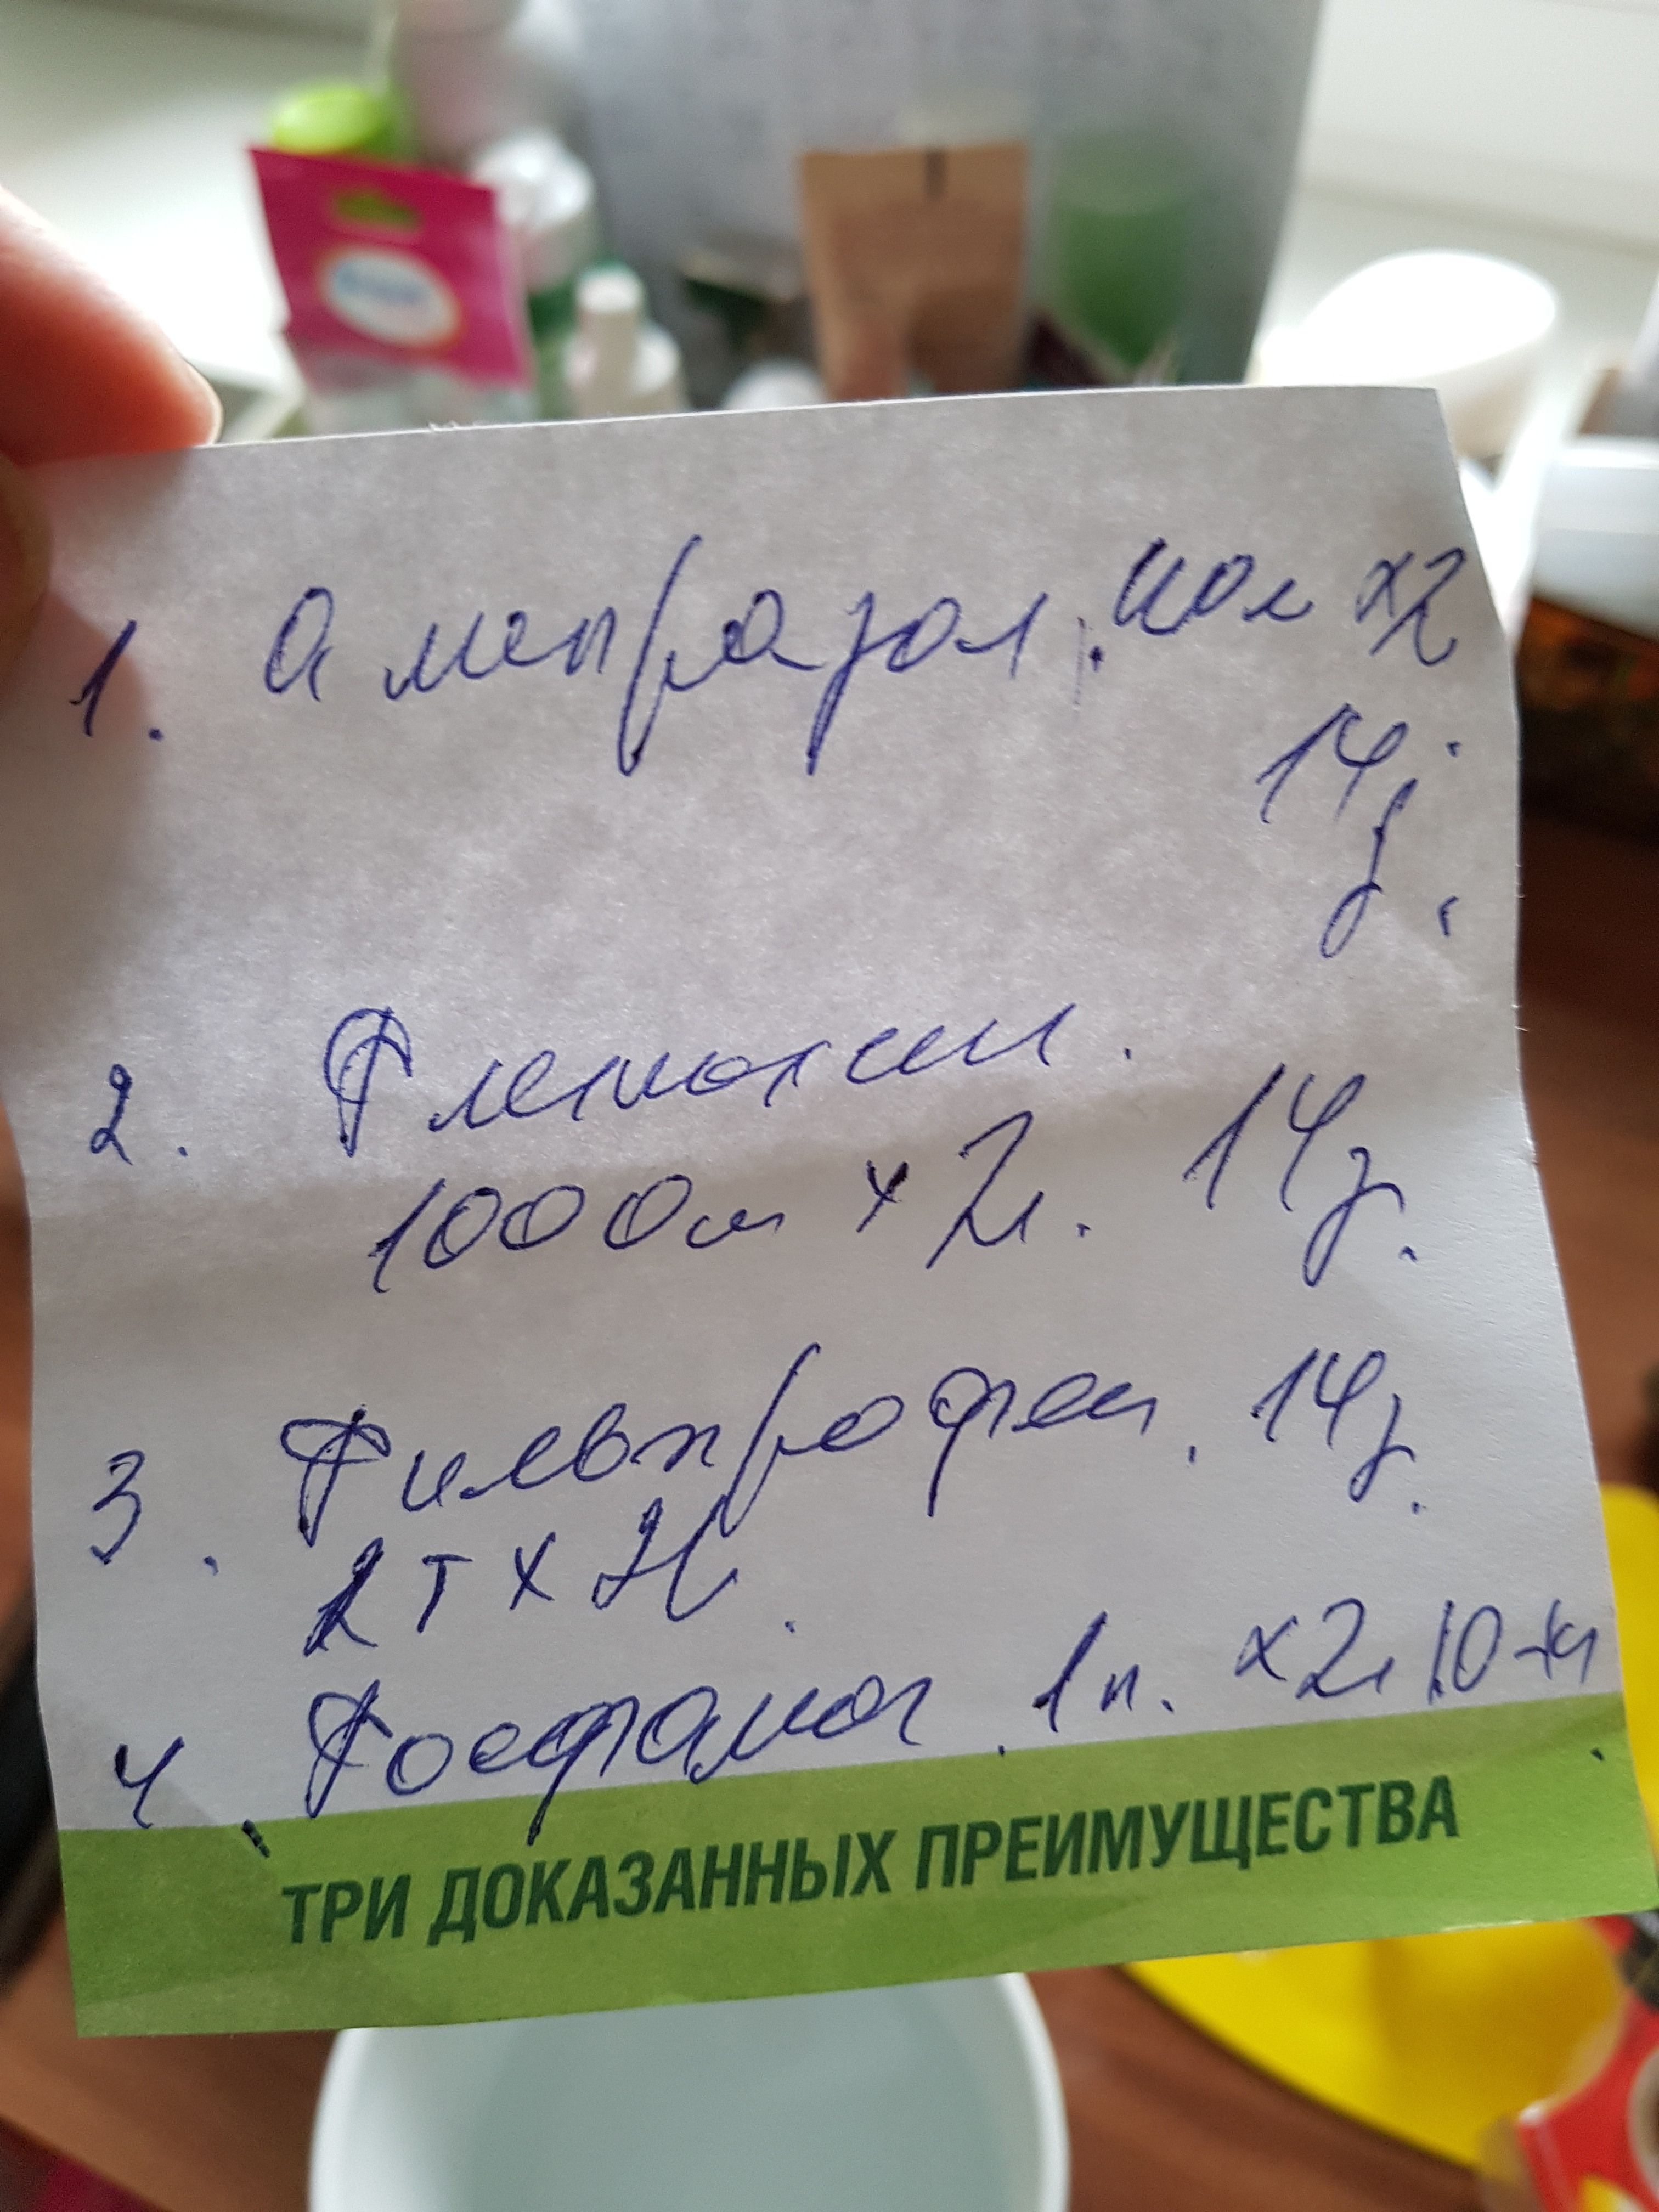 1. Омепразол. кап х2
14д.
2. Флемоксин.
1000 мг х 2р. 14д.
3. Пилепрофен. 14д.
2т х 2р.
4. Фосфалюг. 1п. х2р 10-14
ТРИ ДОКАЗАННЫХ ПРЕИМУЩЕСТВА